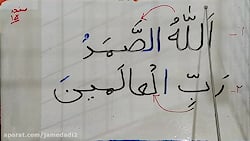 ۱- اَللّٰهُ الصَّمَدُ
۲- رَبِّ الْعالَمينَ
aparat.com/jamedadi2